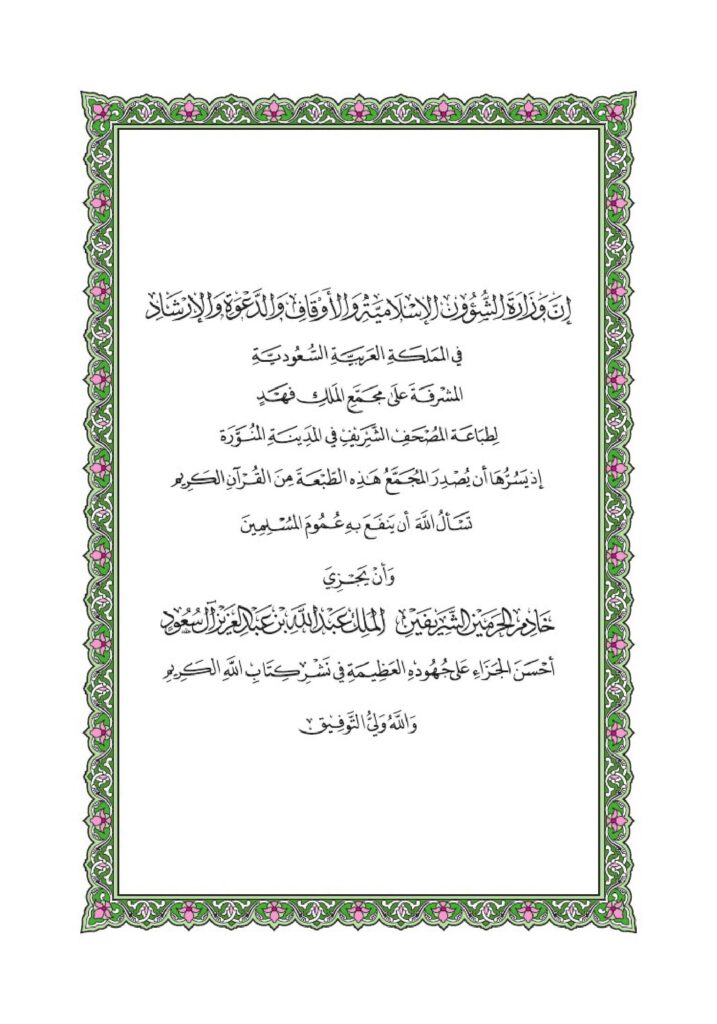 إِنَّ وَزَارَةَ الشُّؤُونِ الإِسْلَامِيَّةِ وَالأَوْقَافِ وَالدَّعْوَةِ وَالإِرْشَادِ
فِي المَمْلَكَةِ العَرَبِيَّةِ السُّعُودِيَّةِ
المُشْرِفَةَ عَلَى مُجَمَّعِ المَلِكِ فَهْدٍ
لِطِبَاعَةِ المُصْحَفِ الشَّرِيفِ فِي المَدِينَةِ المُنَوَّرَةِ
إِذ يَسُرُّهَا أَن يُصْدِرَ المُجَمَّعُ هَذِهِ الطَّبْعَةَ مِنَ القُرْآنِ الكَرِيمِ
تَسْأَلُ اللَّهَ أَن يَنْفَعَ بِهِ عُمُومَ المُسْلِمِينَ
وَأَنْ يَجْزِيَ
خَادِمَ الحَرَمَيْنِ الشَّرِيفَيْنِ المَلِكَ عَبْدَ اللَّهِ بْنَ عَبْدِ العَزِيزِ آل سُعُود
أَحْسَنَ الجَزَاءِ عَلَى جُهُودِهِ العَظِيمَةِ فِي نَشْرِ كِتَابِ اللَّهِ الكَرِيمِ
وَاللَّهُ وَلِيُّ التَّوْفِيقِ